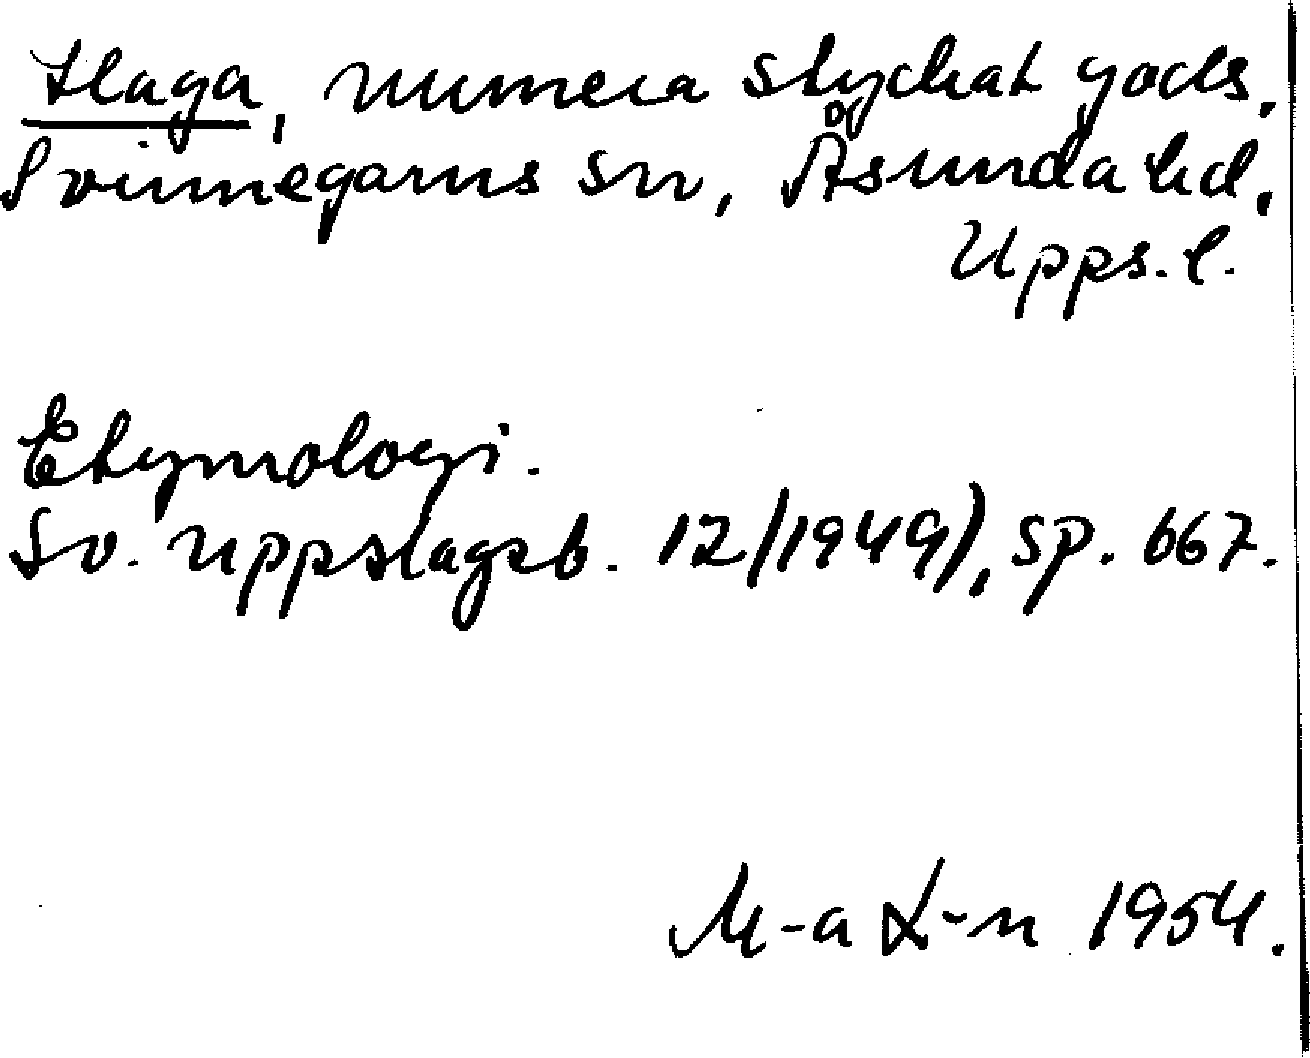 Haga, numera styckat gods.
Svinnegarns sn, Åsunda hd,
Upps. l.
Etymologi.
Sv. uppslagsb. 12 (1949), sp. 667.
M-a L-n 1954.